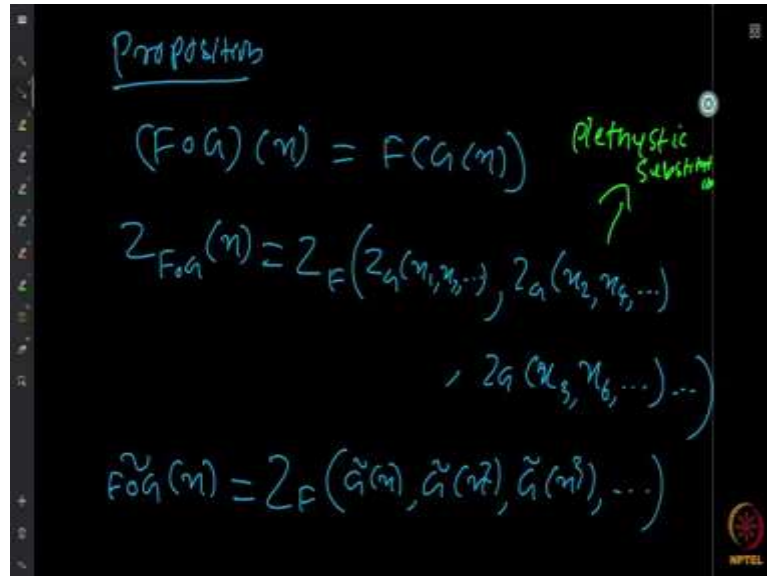 Proposition
(F∘G)(x) = F(G(x))
Plethystic
Substitution
Z_{F∘G}(x) = Z_F(Z_G(x_1, x_2, ...), Z_G(x_2, x_4, ...)
, Z_G(x_3, x_6, ...) ...)
\widetilde{F∘G}(x) = Z_F(\tilde{G}(x), \tilde{G}(x^2), \tilde{G}(x^3), ...)
NPTEL